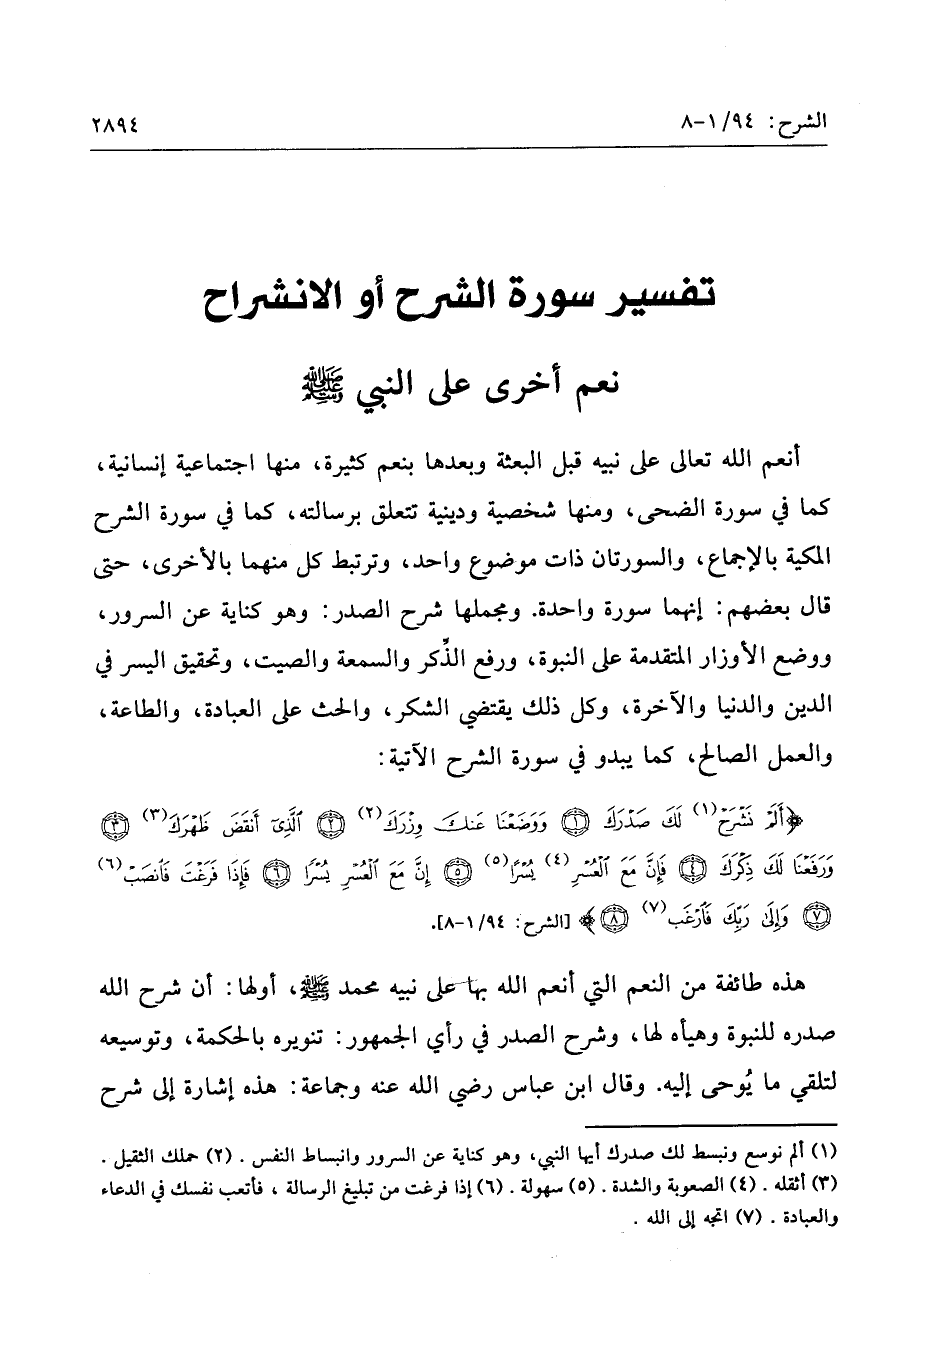 الشرح: ٩٤/ ١-٨
٢٨٩٤
تفسير سورة الشرح أو الانشراح
نعم أخرى على النبي ﷺ
أنعم الله تعالى على نبيه قبل البعثة وبعدها بنعم كثيرة، منها اجتماعية إنسانية،
كما في سورة الضحى، ومنها شخصية ودينية تتعلق برسالته، كما في سورة الشرح
المكية بالإجماع، والسورتان ذات موضوع واحد، وترتبط كل منهما بالأخرى، حتى
قال بعضهم: إنهما سورة واحدة. ومجملها شرح الصدر: وهو كناية عن السرور،
ووضع الأوزار المتقدمة على النبوة، ورفع الذِّكر والسمعة والصيت، وتحقيق اليسر في
الدين والدنيا والآخرة، وكل ذلك يقتضي الشكر، والحث على العبادة، والطاعة،
والعمل الصالح، كما يبدو في سورة الشرح الآتية:
﴿أَلَمْ نَشْرَحْ(١) لَكَ صَدْرَكَ ۝١ وَوَضَعْنَا عَنكَ وِزْرَكَ(٢) ۝٢ ٱلَّذِىٓ أَنقَضَ ظَهْرَكَ(٣) ۝٣
وَرَفَعْنَا لَكَ ذِكْرَكَ ۝٤ فَإِنَّ مَعَ ٱلْعُسْرِ(٤) يُسْرًا(٥) ۝٥ إِنَّ مَعَ ٱلْعُسْرِ يُسْرًا ۝٦ فَإِذَا فَرَغْتَ فَٱنصَبْ(٦)
۝٧ وَإِلَىٰ رَبِّكَ فَٱرْغَب(٧) ۝٨﴾ [الشرح: ٩٤/ ١-٨].
هذه طائفة من النعم التي أنعم الله بها على نبيه محمد ﷺ، أولها: أن شرح الله
صدره للنبوة وهيأه لها، وشرح الصدر في رأي الجمهور: تنويره بالحكمة، وتوسيعه
لتلقي ما يُوحى إليه. وقال ابن عباس رضي الله عنه وجماعة: هذه إشارة إلى شرح
(١) ألم نوسع ونبسط لك صدرك أيها النبي، وهو كناية عن السرور وانبساط النفس . (٢) حملك الثقيل .
(٣) أثقله . (٤) الصعوبة والشدة . (٥) سهولة . (٦) إذا فرغت من تبليغ الرسالة ، فأتعب نفسك في الدعاء
والعبادة . (٧) اتجه إلى الله .